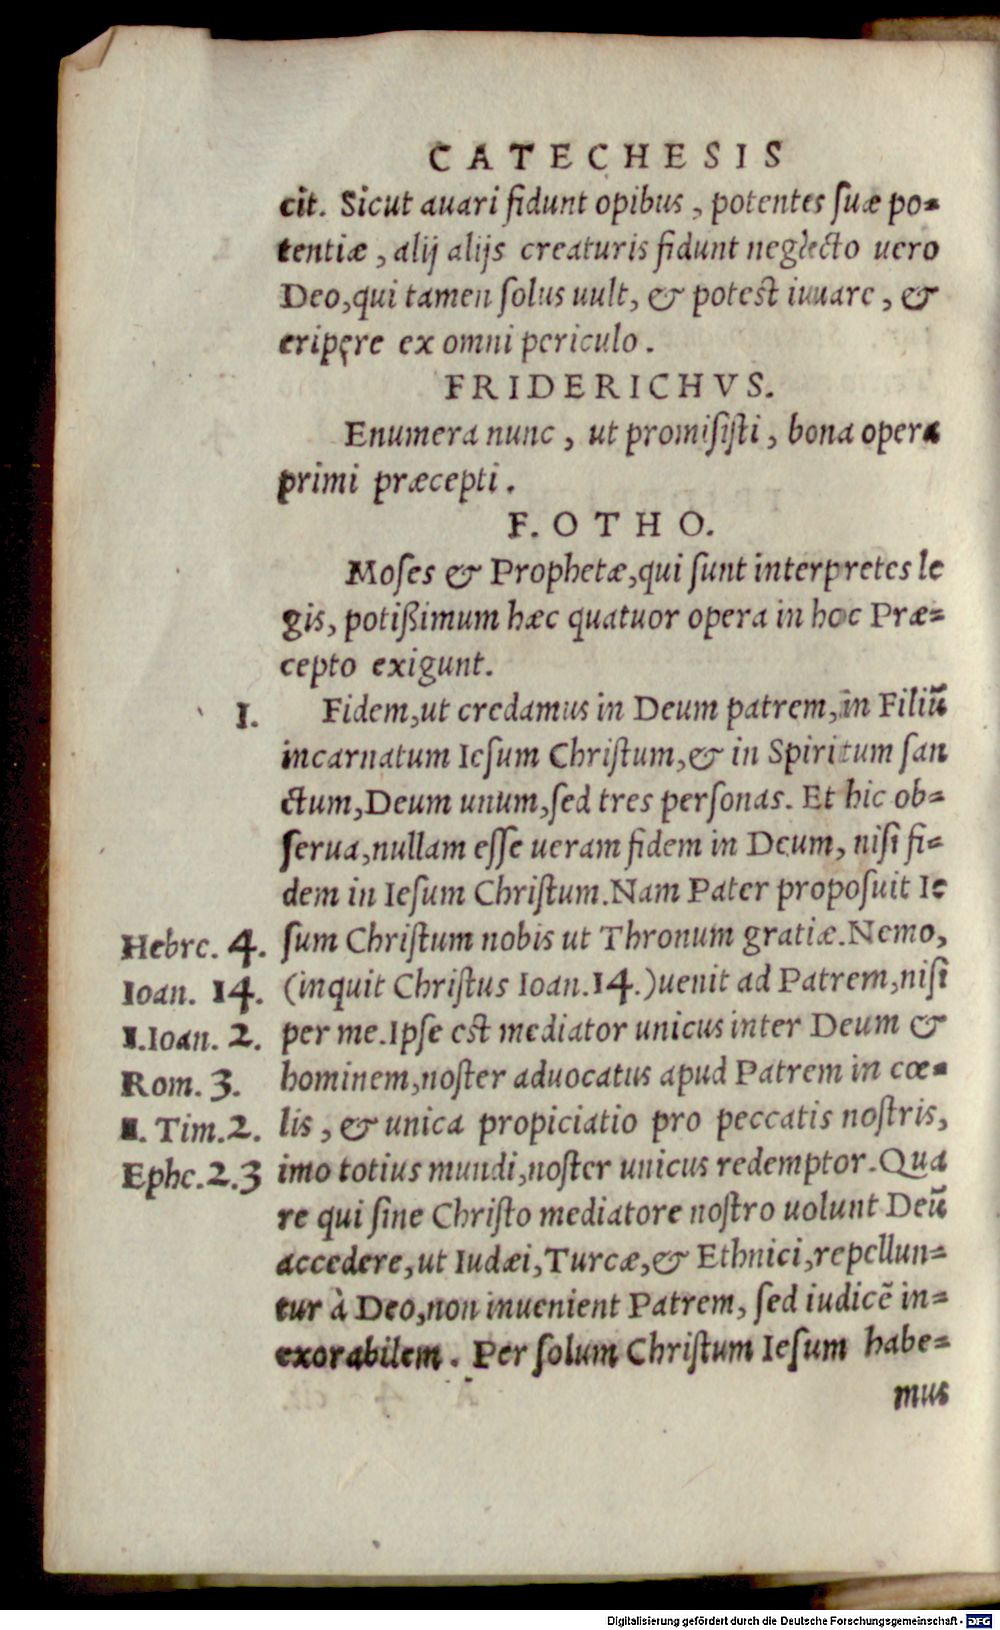 CATECHESIS
cit. Sicut auari fidunt opibus, potentes suæ po=
tentiæ, alij alijs creaturis fidunt neglecto uero
Deo, qui tamen solus uult, & potest iuuare, &
eripęre ex omni periculo.
FRIDERICHVS.
Enumera nunc, ut promisisti, bona opera
primi præcepti.
F. OTHO.
Moses & Prophetæ, qui sunt interpretes le
gis, potißimum hæc quatuor opera in hoc Præ=
cepto exigunt.
I. Fidem, ut credamus in Deum patrem, in Filiū
incarnatum Iesum Christum, & in Spiritum san
ctum, Deum unum, sed tres personas. Et hic ob=
serua, nullam esse ueram fidem in Deum, nisi fi=
dem in Iesum Christum. Nam Pater proposuit Ie
Hebre. 4. sum Christum nobis ut Thronum gratiæ. Nemo,
Ioan. 14. (inquit Christus Ioan. 14.) uenit ad Patrem, nisi
1. Ioan. 2. per me. Ipse est mediator unicus inter Deum &
Rom. 3. hominem, noster aduocatus apud Patrem in cœ=
1. Tim. 2. lis, & unica propiciatio pro peccatis nostris,
Ephe. 2. 3 imo totius mundi, noster unicus redemptor. Qua
re qui sine Christo mediatore nostro uolunt Deū
accedere, ut Iudæi, Turcæ, & Ethnici, repellun=
tur à Deo, non inuenient Patrem, sed iudicē in=
exorabilem. Per solum Christum Iesum habe=
mus
Digitalisierung gefördert durch die Deutsche Forschungsgemeinschaft - DFG